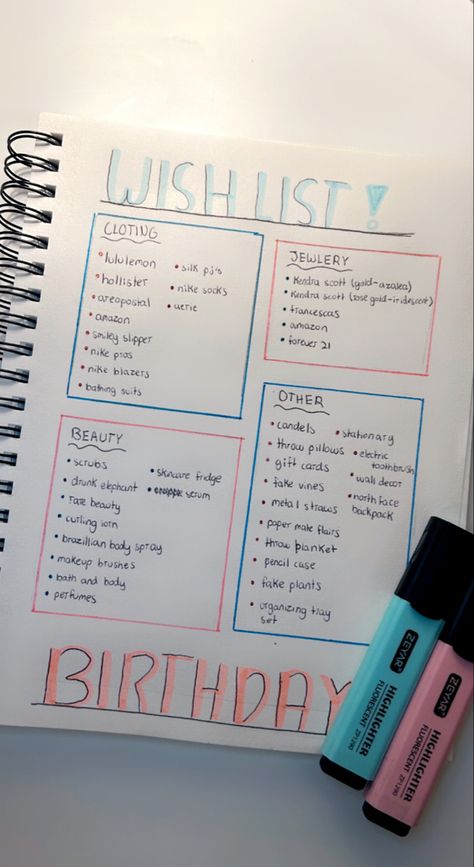 WISH LIST!
CLOTING
lululemon
hollister
areopostal
amazon
smiley slipper
nike pros
nike blazers
bathing suits
silk pj's
nike socks
aerie
JEWLERY
Kendra scott (gold-azalea)
Kendra scott (rose gold-iridescent)
francescas
amazon
forever 21
BEAUTY
scrubs
drunk elephant
rare beauty
curling iorn
brazillian body spray
makeup brushes
bath and body
perfumes
skincare fridge
serum
OTHER
candels
throw pillows
gift cards
fake vines
metal straws
paper mate flairs
throw blanket
pencil case
fake plants
organizing tray
set
stationary
electric
toothbrush
wall decor
north face
backpack
BIRTHDAY
ZEYAR
HIGHLIGHTER
FLUORESCENT ZP1290
ZEYAR
HIGHLIGHTER
FLUORESCENT ZP1290